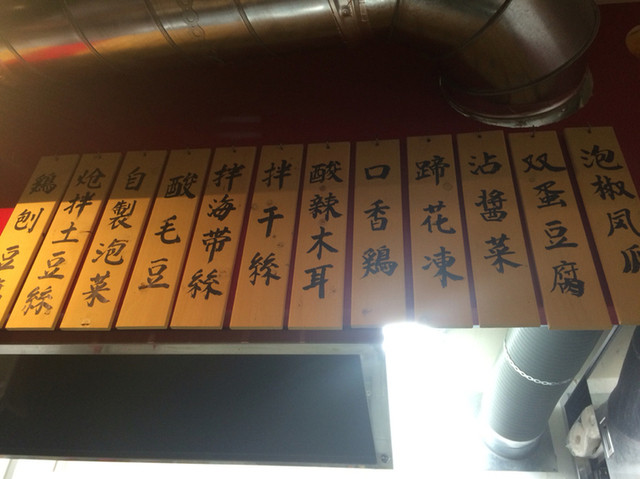 泡椒凤爪
双蛋豆腐
沾醬菜
蹄花凍
口香鶏
酸辣木耳
拌干絲
拌海带絲
酸毛豆
自製泡菜
炝拌土豆絲
鶏刨豆